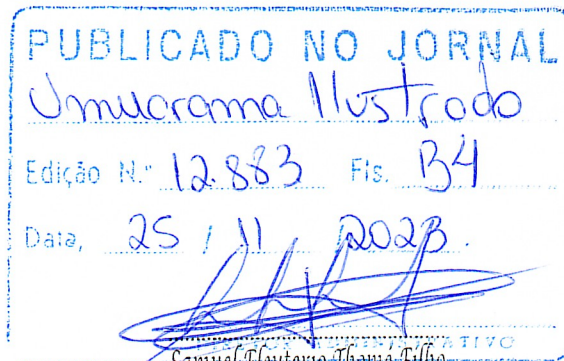 PUBLICADO NO JORNAL
Umuarama Ilustrado
Edição N.º 12.883 Fls. B4
Data, 25 / 11 / 2023.
ADMINISTRATIVO
Samuel Eleuterio Thomé Filho